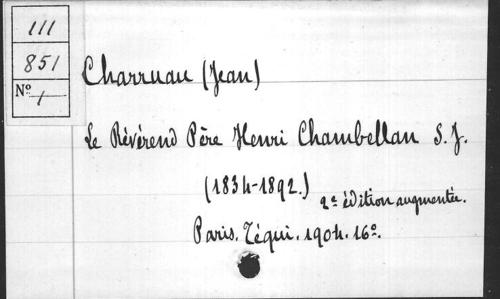 111
851
Nº 1
Charruau (Jean)
Le Révérend Père Henri Chambellan S. J.
(1834-1892.)
2e édition augmentée.
Paris. Téqui. 1904. 16º.